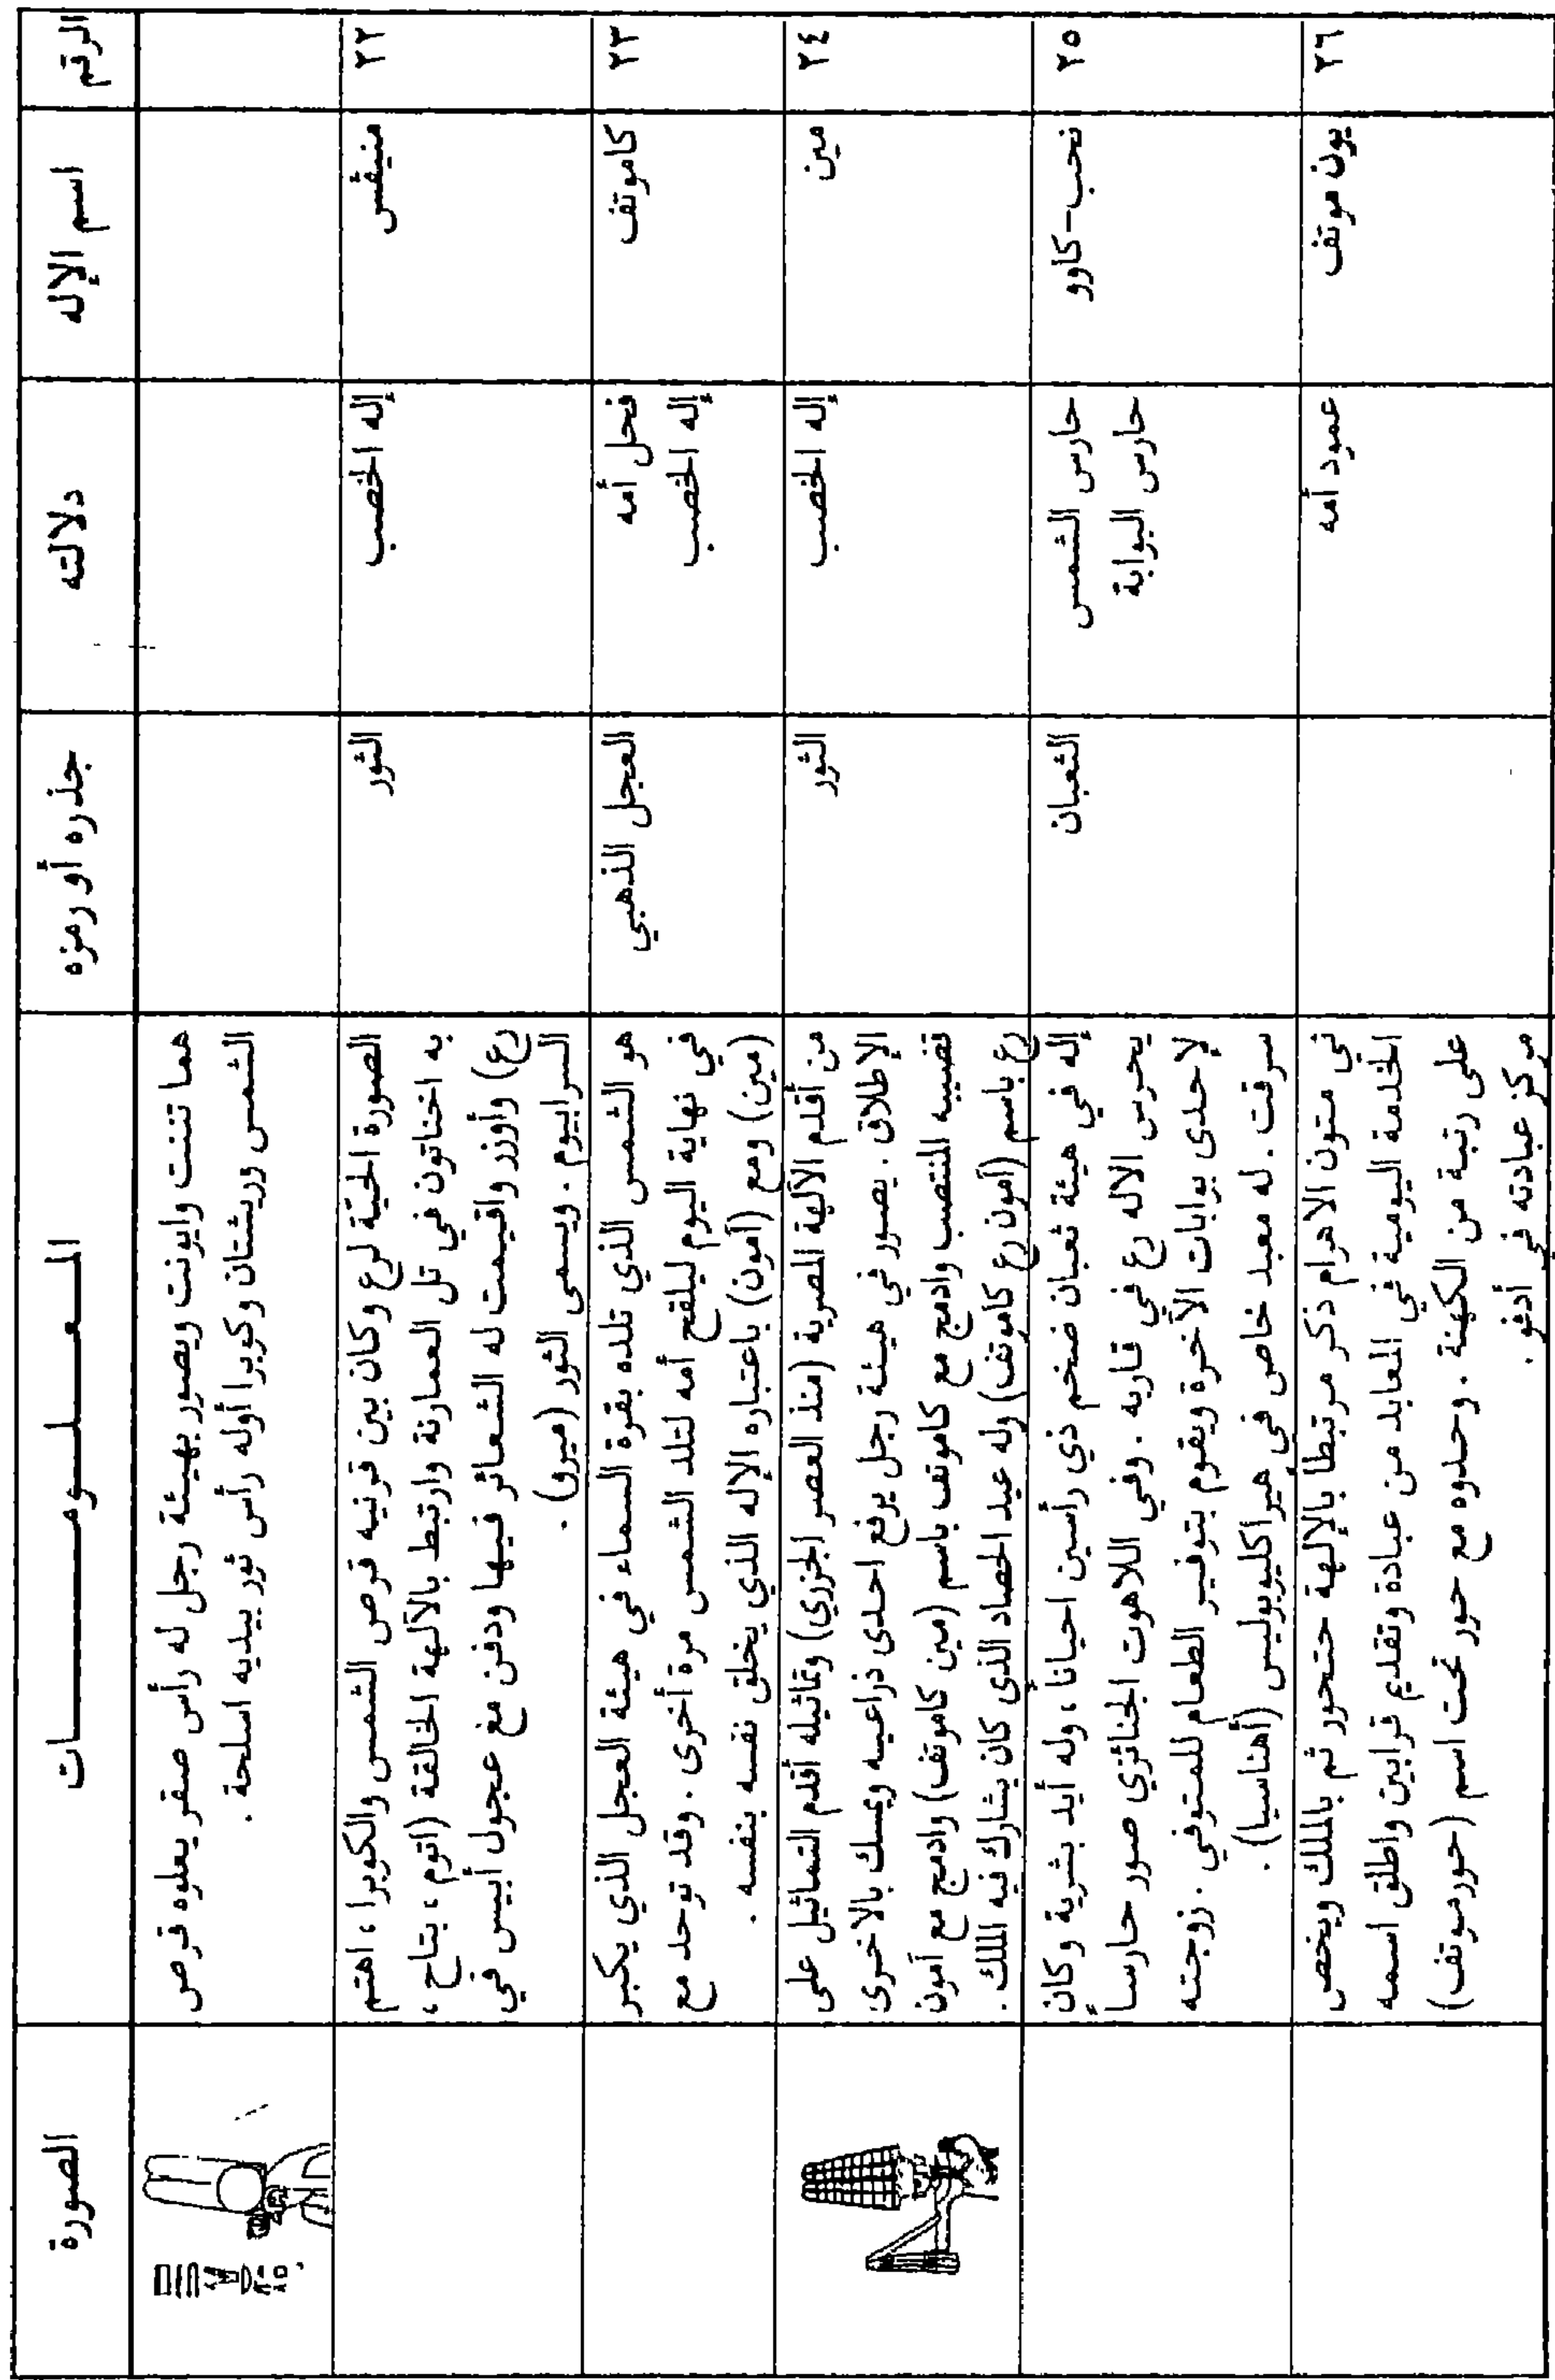 الرقم
اسم الإله
دلالته
جذره أو رمزه
المعلومات
الصورة
هما تننت وايونت ويصور بهيئة رجل له رأس صقر يعلوه قرص
الشمس وريشتان وكوبرا أوله رأس ثور بيديه اسلحة .
٢٢
منيڤس
إله الخصب
الثور
الصورة الحيّة لرع وكان بين قرنيه قرص الشمس والكوبرا ، اهتم
به اخناتون في تل العمارنة وارتبط بالآلهة الخالقة (اتوم ، بتاح ،
رع) وأوزر واقيمت له الشعائر فيها ودفن مع عجول أبيس في
السرابيوم . ويسمى الثور (ميرو) .
٢٣
كاموتف
فحل أمه
إله الخصب
العجل الذهبي
هو الشمس الذي تلده بقرة السماء في هيئة العجل الذي يكبر
في نهاية اليوم ليلقح أمه لتلد الشمس مرة أخرى . وقد توحد مع
(مين) ومع (آمون) باعتباره الإله الذي يخلق نفسه بنفسه .
٢٤
مين
إله الخصب
الثور
من أقدم الآلهة المصرية (منذ العصر الجزري) وتماثيله أقدم التماثيل على
الإطلاق . يصور في هيئة رجل يرفع احدى ذراعيه ويمسك بالاخرى
قضيبه المنتصب وادمج مع كاموتف باسم (مين كاموتف) وادمج مع آمون
رع باسم (آمون رع كاموتف) وله عيد الحصاد الذي كان يشارك فيه الملك .
٢٥
نحب-كاوو
حارس الشمس
حارس البوابة
الثعبان
إله في هيئة ثعبان ضخم ذي رأسين احيانا ، وله أيد بشرية وكان
يحرس الاله رع في قاربه . وفي اللاهوت الجنائزي صور حارساً
لإحدى بوابات الآخرة ويقوم بتوفير الطعام للمتوفي . زوجته
سرقت . له معبد خاص في هيراكليوبوليس (أهناسيا) .
٢٦
يون موتف
عمود أمه
في متون الاهرام ذكر مرتبطا بالإلهة حتحور ثم بالملك ويخص
الخدمة اليومية في المعابد من عبادة وتقديم قرابين واطلق اسمه
على رتبة من الكهنة . وحدوه مع حور تحت اسم (حورموتف)
مركز عبادته في أدفو .